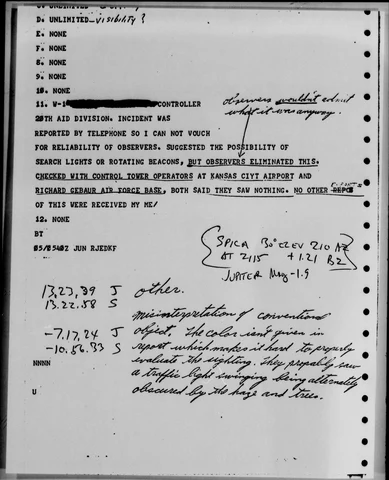 D. UNLIMITED - visibility?
E. NONE
F. NONE
8. NONE
9. NONE
10. NONE
11. W-1 CONTROLLER
observers wouldn't admit
what it was anyway.
20TH AID DIVISION. INCIDENT WAS
REPORTED BY TELEPHONE SO I CAN NOT VOUCH
FOR RELIABILITY OF OBSERVERS. SUGGESTED THE POSSIBILITY OF
SEARCH LIGHTS OR ROTATING BEACONS, BUT OBSERVERS ELIMINATED THIS.
CHECKED WITH CONTROL TOWER OPERATORS AT KANSAS CIYT AIRPORT AND
RICHARD GEBAUR AIR FORCE BASE, BOTH SAID THEY SAW NOTHING. NO OTHER
OF THIS WERE RECEIVED MY ME/
12. NONE
BT
05/0540Z JUN RJEDKF
SPICA 30° ELEV 210 AZ
AT 2115 +1.21 B2
JUPITER Mag -1.9
13,23,39 J
13.22.58 S
-7.17,24 J
-10.56.33 S
other.
misinterpretation of conventional
object. The color isn't given in
report which makes it hard to properly
evaluate the sighting. They propably saw
a traffic light swinging being alternately
obscured by the haze and trees.
NNNN
U